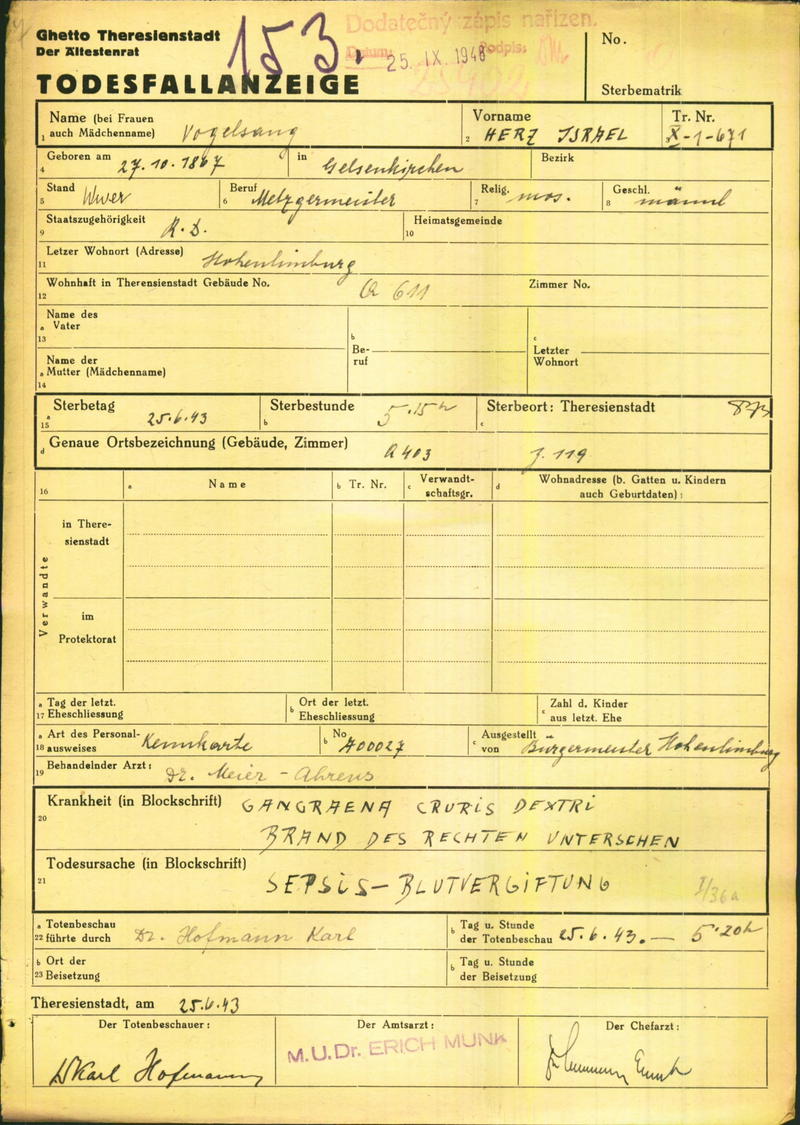 Ghetto Theresienstadt
Der Ältestenrat
153.
Dodatečný zápis nařízen.
Datum: 25. IX. 1948 Podpis:
TODESFALLANZEIGE
No.
Sterbematrik
Name (bei Frauen auch Mädchenname) Vogelsang
1
Vorname
2 HERZ ISRAEL
Tr. Nr.
3 X-1-671
Geboren am 27.10.1867
4
in Gelsenkirchen
Bezirk
Stand Wwer
5
Beruf Metzgermeister
6
Relig. mos.
7
Geschl. männl
8
Staatszugehörigkeit R.D.
9
Heimatsgemeinde
10
Letzer Wohnort (Adresse) Hohenlimburg
11
Wohnhaft in Theresienstadt Gebäude No. Q 611
12
Zimmer No.
Name des
a Vater
13
b
Be-
ruf
c
Letzter
Wohnort
Name der
a Mutter (Mädchenname)
14
a Sterbetag 25.6.43
15
Sterbestunde 5.15h
b
Sterbeort: Theresienstadt
c
d Genaue Ortsbezeichnung (Gebäude, Zimmer) Q 403 J. 119
16
a Name
b Tr. Nr.
c Verwandt-
schaftsgr.
d Wohnadresse (b. Gatten u. Kindern
auch Geburtdaten):
Verwandte
in There-
sienstadt
im
Protektorat
a Tag der letzt.
17 Eheschliessung
b Ort der letzt.
Eheschliessung
c Zahl d. Kinder
aus letzt. Ehe
a Art des Personal-
18 ausweises Kennkarte
b No A00027
c Ausgestellt
von Bürgermeister Hohenlimburg
Behandelnder Arzt: Dr. Meier-Ahrens
19
Krankheit (in Blockschrift) GANGRAENA CRURIS DEXTRI
20
BRAND DES RECHTEN UNTERSCHEN
Todesursache (in Blockschrift)
21 SEPSIS-BLUTVERGIFTUNG
I/36a
a Totenbeschau
22 führte durch Dr. Hofmann Karl
b Tag u. Stunde
der Totenbeschau 25.6.43. - 5'20h
b Ort der
23 Beisetzung
b Tag u. Stunde
der Beisetzung
Theresienstadt, am 25.6.43
Der Totenbeschauer:
Der Amtsarzt:
Der Chefarzt:
Dr Karl Hofmann
M.U.Dr. ERICH MUNK